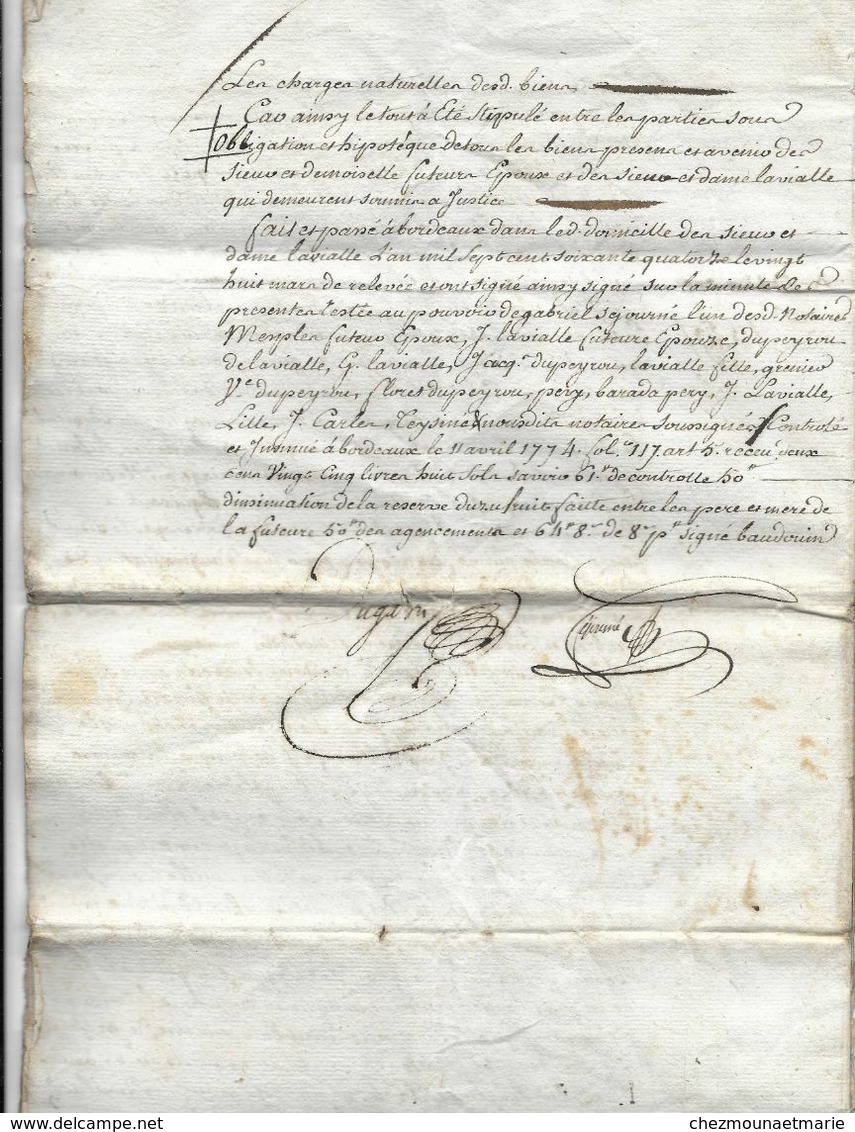 Les charges naturelles desd. biens
Car ainsy le tout à Eté Stipulé entre les parties sous
Obligation et hipotéque de tous les biens presens et avenir des
sieur et demoiselle futurs Epoux et des sieur et dame lavialle
qui demeurent soumis a Justice
fait et passé à bordeaux dans led. domicille des sieur et
dame lavialle L'an mil Sept cent soixante quatorze le vingt
huit mars de relevée et ont signé ainsy signé sur la minute des
presentes restée au pouvoir de gabriel sejourné l'un desd. Notaires
Mesples futeur Epoux, J. lavialle futeure Epouze, dupeyrou
de lavialle, G. lavialle, Jacq. dupeyrou, lavialle fille, grenier
Ve. dupeyrou, flores dupeyrou, pery, barada pery, J. Lavialle,
Lille, J. Carles, & nousdits notaires soussignés Controlé
et Insinué à bordeaux le 11 avril 1774. fol. 117. art 5. receu deux
cens Vingt Cinq livres huit sols savoir 61.# de controlle 50#
dinsinuation de la reserve duzufruit faitte entre les pere et mere de
la futeure 50# des agencements et 64# 8s. de 8s. p# signé baudouin
chezmounaetmarie